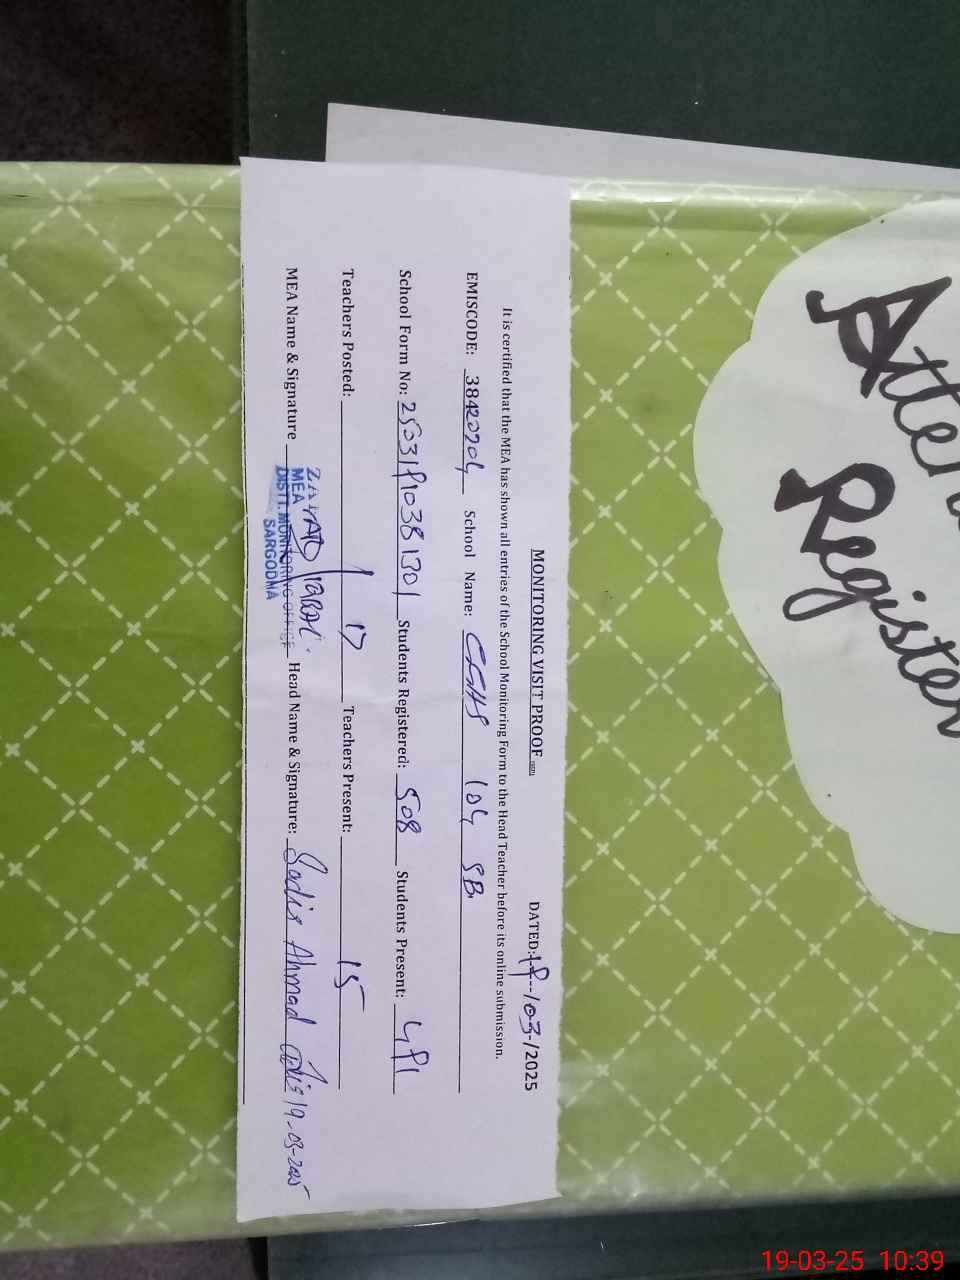 MONITORING VISIT PROOF
DATED: 19-/03-/2025
It is certified that the MEA has shown all entries of the School Monitoring Form to the Head Teacher before its online submission.
EMISCODE: 38420204 School Name: GGHS 104 SB.
School Form No: 2533191038 1301 Students Registered: 508 Students Present: 491
Teachers Posted: 17 Teachers Present: 15
MEA Name & Signature Head Name & Signature: Ahmad 19-03-2025
MEA
DISTT. MONITORING OFFICE
SARGODHA
Register
19-03-25 10:39